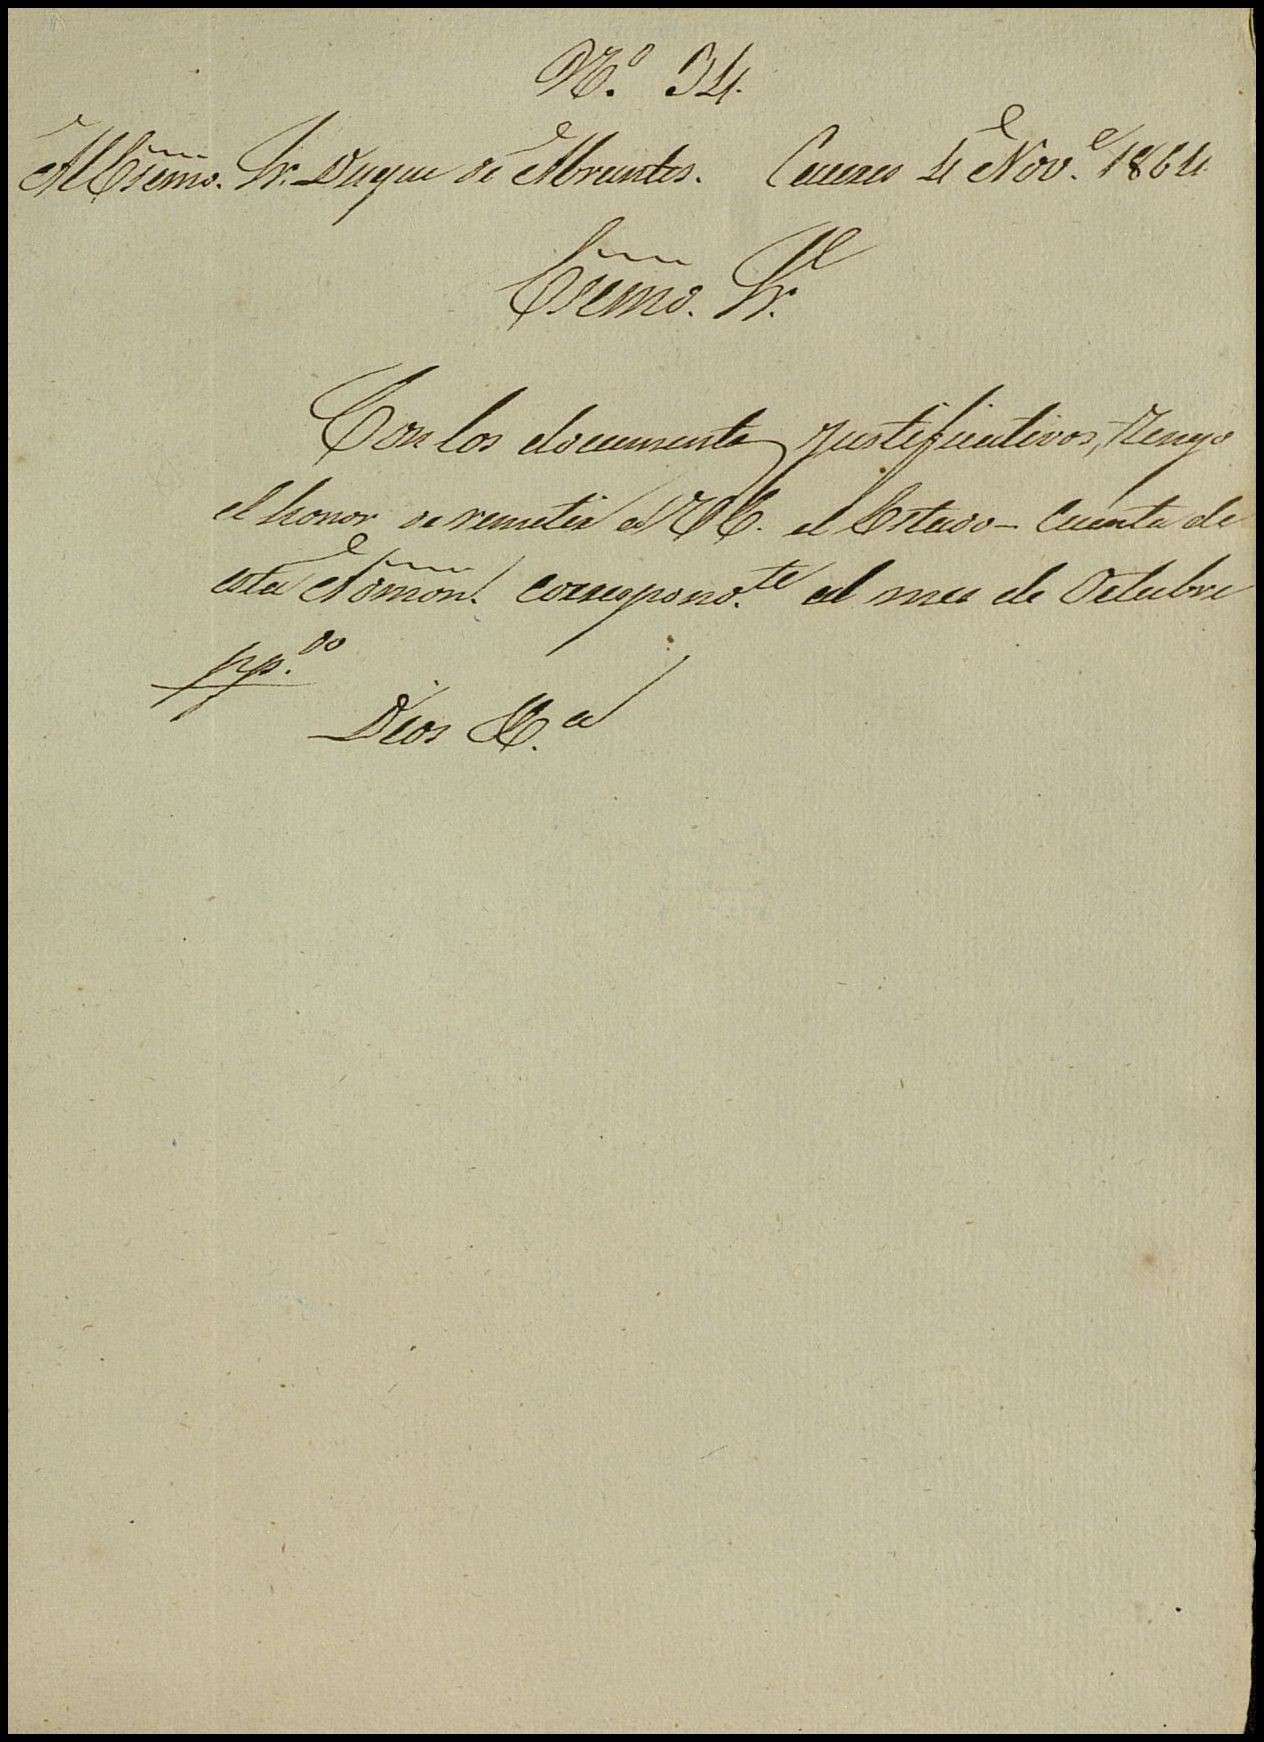 N.º 34.
Al Exĩmo. Sr. Duque de Abrantes. Caceres 4 Nov.e 1864
Exĩmo. Sr.
Con los documentos justificativos, tengo
el honor de remitir a V.E. el Estado-Cuenta de
esta Admõn. correspond.te al mes de Octubre
pp.do
Dios &.a